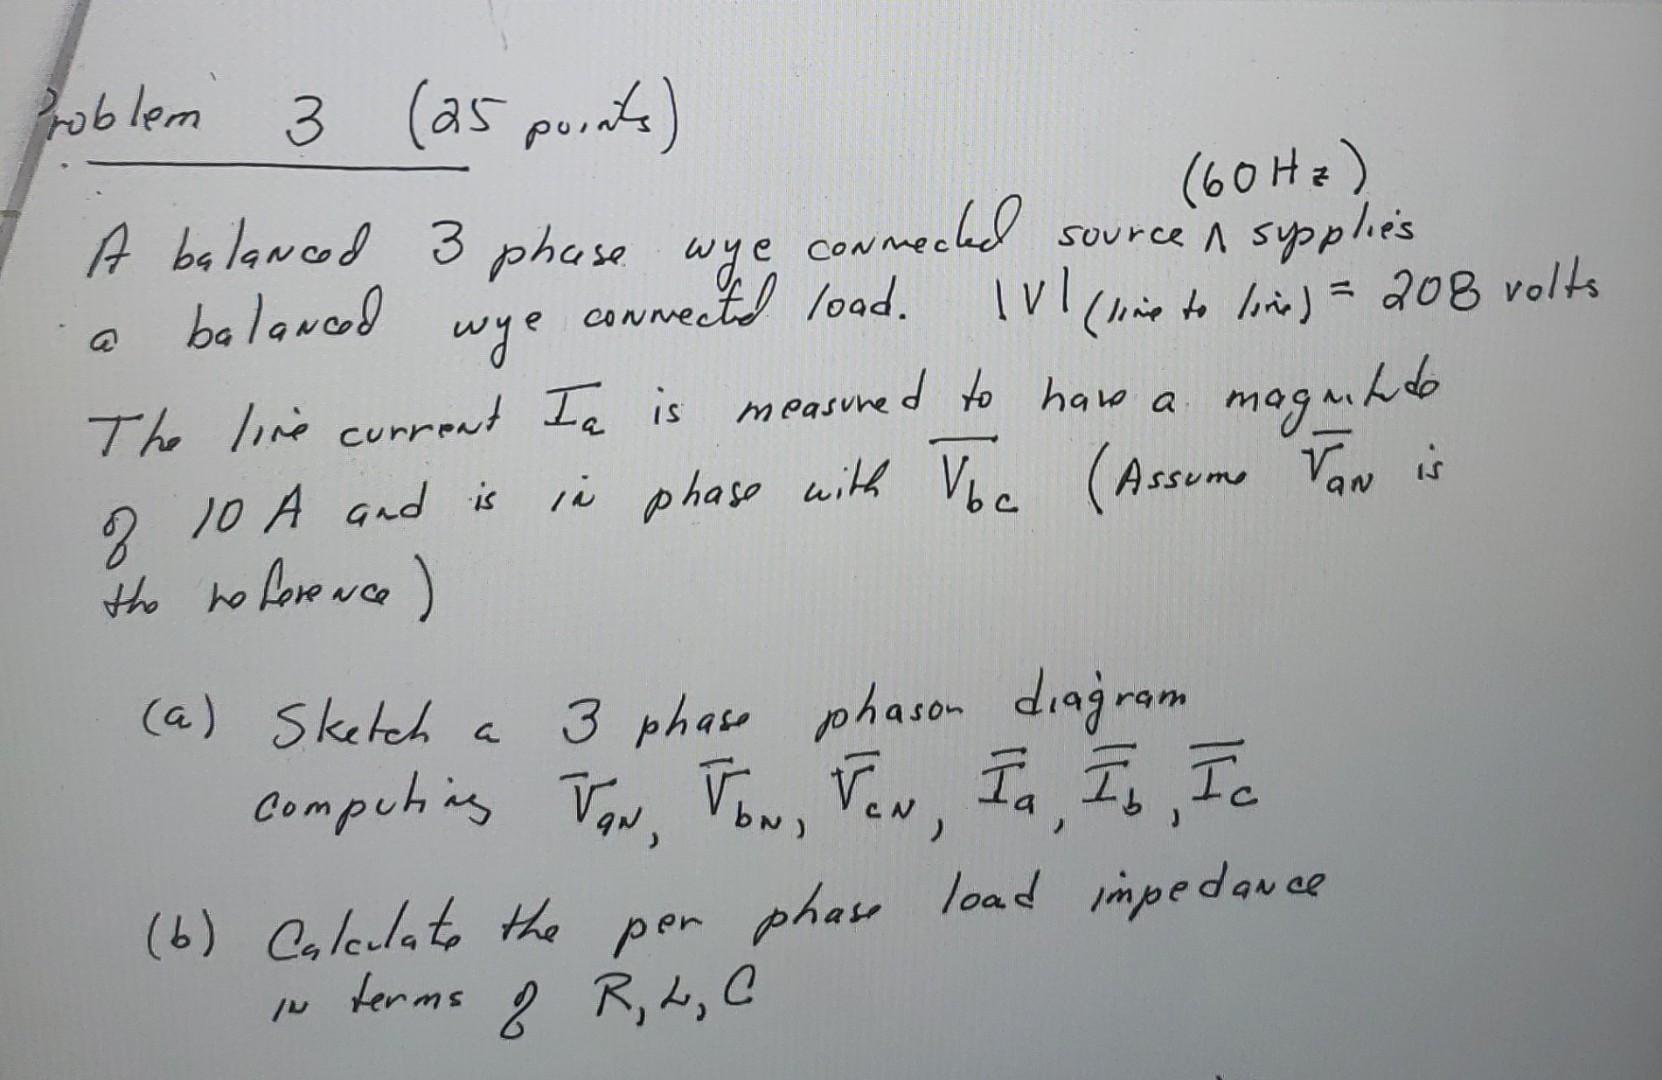 Problem 3 (25 points)
(60 Hz)
A balanced 3 phase wye connected source ∧ supplies
a balanced wye connected load. |V| (line to line) = 208 volts
The line current I̅a is measured to have a magnitude
of 10 A and is in phase with V̅bc (Assume V̅aN is
the reference)
(a) Sketch a 3 phase phasor diagram
computing V̅aN, V̅bN, V̅cN, I̅a, I̅b, I̅c
(b) Calculate the per phase load impedance
in terms of R, L, C